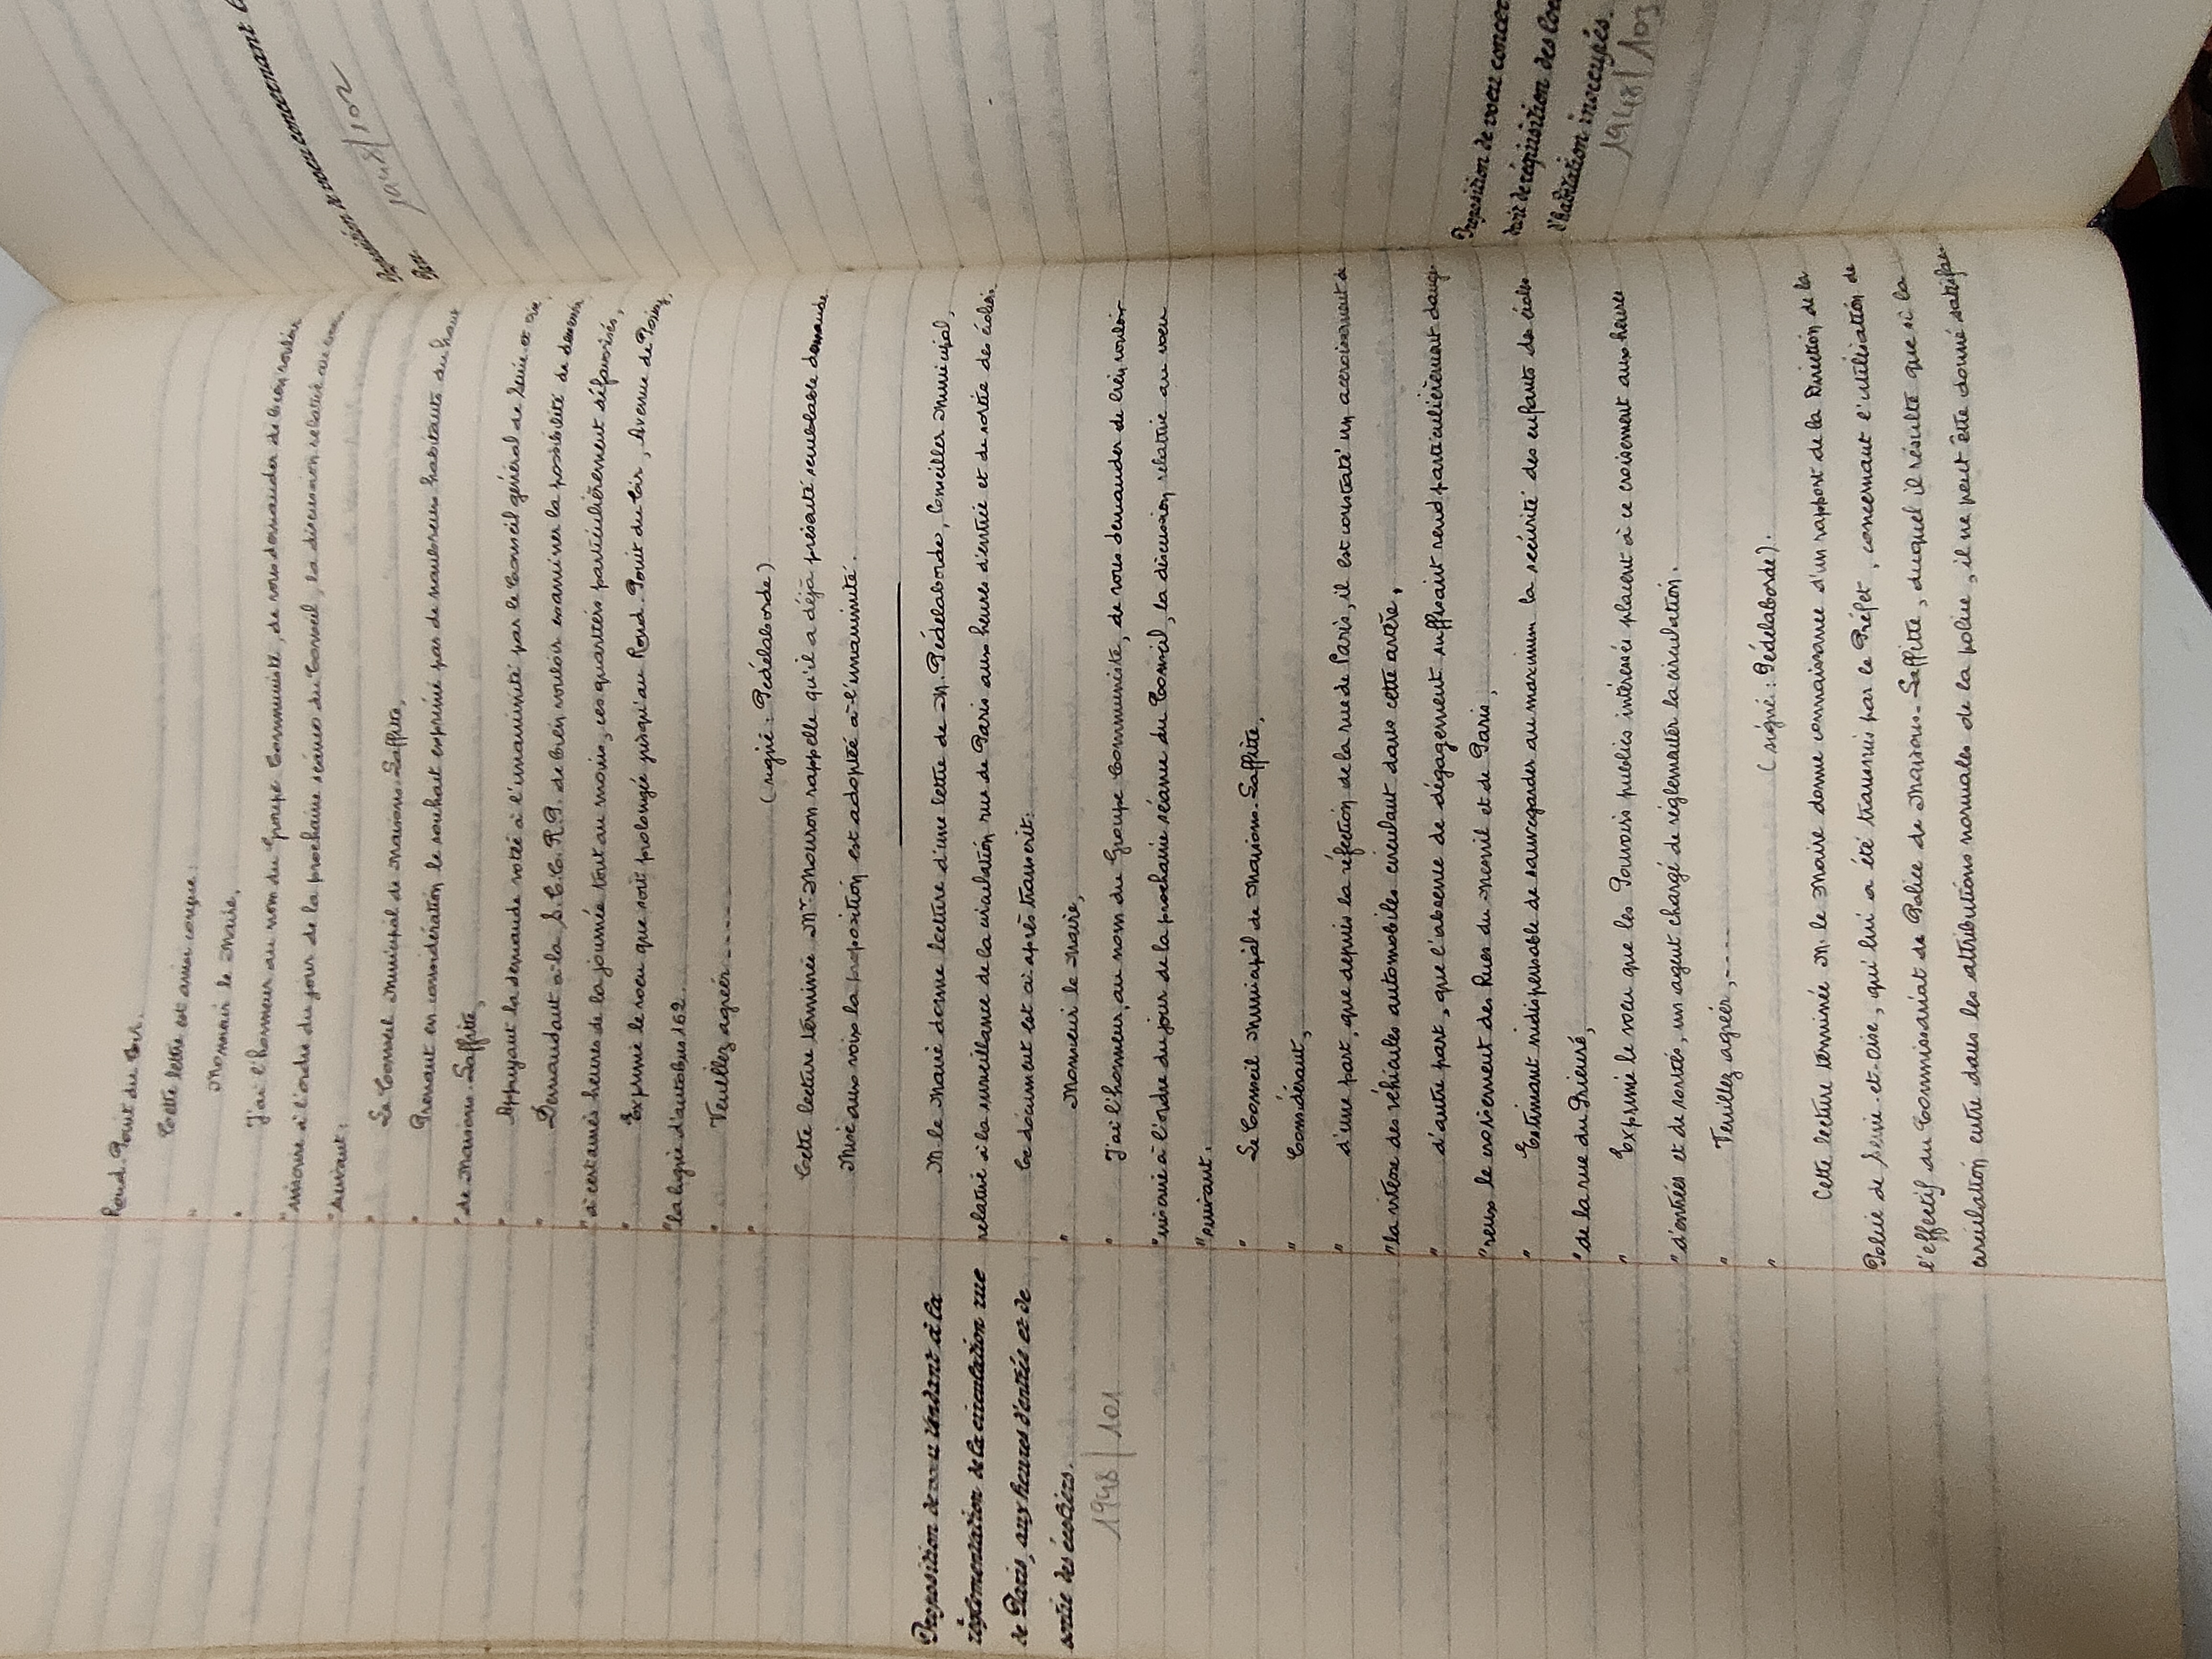 Rond-Point du Tir.
Cette lettre est ainsi conçue :
" Monsieur le Maire,
" J'ai l'honneur au nom du Groupe Communiste, de vous demander de bien vouloir
"inscrire à l'ordre du jour de la prochaine séance du Conseil, la discussion relative au voeu
"suivant :
" Le Conseil Municipal de Maisons-Laffitte,
" Prenant en considération le souhait exprimé par de nombreux habitants du haut
"de Maisons-Laffitte,
" Appuyant la demande votée à l'unanimité par le Conseil général de Seine et Oise,
" Demandant à la S.C.C.R.P. de bien vouloir examiner la possibilité de desservir,
"à certaines heures de la journée tout au moins, ces quartiers particulièrement défavorisés,
" Exprime le voeu que soit prolongé jusqu'au Rond-Point du Tir, Avenue de Poissy,
"la ligne d'autobus 162.
" Veuillez agréer.....
" (signé : Pédelaborde)
Cette lecture terminée Mr. Mouron rappelle qu'il a déjà présenté semblable demande
Mise aux voix la proposition est adoptée à l'unanimité.
Proposition de voeu tendant à la
réglementation de la circulation rue
de Paris, aux heures d'entrée et de
sortie des écoliers.
1948/101
M. le Maire donne lecture d'une lettre de M. Pédelaborde, Conseiller Municipal,
relative à la surveillance de la circulation rue de Paris aux heures d'entrée et de sortie des écoliers.
Ce document est ci-après transcrit:
" Monsieur le Maire,
" J'ai l'honneur, au nom du Groupe Communiste, de vous demander de bien vouloir
"inscrire à l'ordre du jour de la prochaine séance du Conseil, la discussion relative au voeu
"suivant :
" Le Conseil Municipal de Maisons-Laffitte,
" Considérant,
" d'une part, que depuis la réfection de la rue de Paris, il est constaté un accroissement de
"la vitesse des véhicules automobiles circulant dans cette artère,
" d'autre part, que l'absence de dégagement suffisant rend particulièrement dange
"reux le croisement des Rues du Mesnil et de Paris,
" Estimant indispensable de sauvegarder au maximum la sécurité des enfants des écoles
"de la rue du Prieuré,
" Exprime le voeu que les Pouvoirs publics intéressés placent à ce croisement aux heures
"d'entrées et de sorties, un agent chargé de réglementer la circulation.
" Veuillez agréer,.....
" (signé : Pédelaborde).
Cette lecture terminée M. le Maire donne connaissance d'un rapport de la Direction de la
Police de Seine-et-Oise, qui lui a été transmis par le Préfet, concernant l'utilisation de
l'effectif du Commissariat de Police de Maisons-Laffitte, duquel il résulte que si la
circulation entre dans les attributions normales de la police, il ne peut être donné satisfac
Proposition de voeu concernant
1948/102
Proposition de voeu concer
droit de réquisition des loc
d'habitation inoccupés.
1948/103